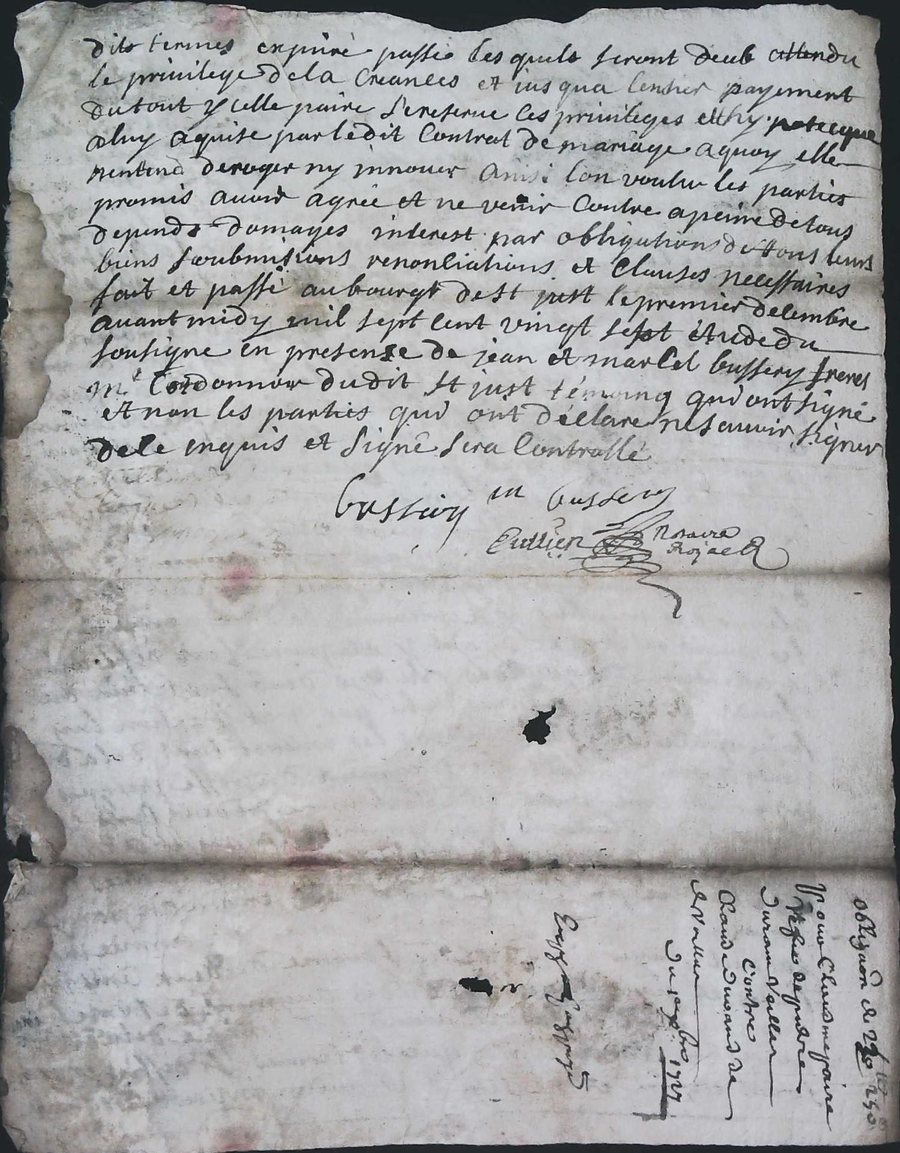 dits termes expiré passé lesquels seront deub attendu
le privilege de la Creances et jusqua lentier payement
du tout ycelle paire sereserve les privileges et hy potecque
a luy aquise par ledit Contrat de mariage aquoy elle
nentend deroger ny innover ainsi lon voulu les parties
promis avoir agrée et ne venir Contre a peine de tous
depends domages interest par obligations de tous leurs
biens soubmisions renonciations et Clauses necessaires
fait et passé au bourgt de St just le premier decembre
avant midy mil sept cent vingt sept Etude du
sousigne en presense de jean et marcel bussery freres
Mes Cordonnier dudit St just témoing qui ont signé
et non les parties qui ont déclare ne savoir signer
de ce enquis et signé sera Controllé
bussery m bussery
Cuttier Notaire
Royal
obligaon de 290
pour Claudine paire
Contre
Claude durand de
du 1er xbre 1727